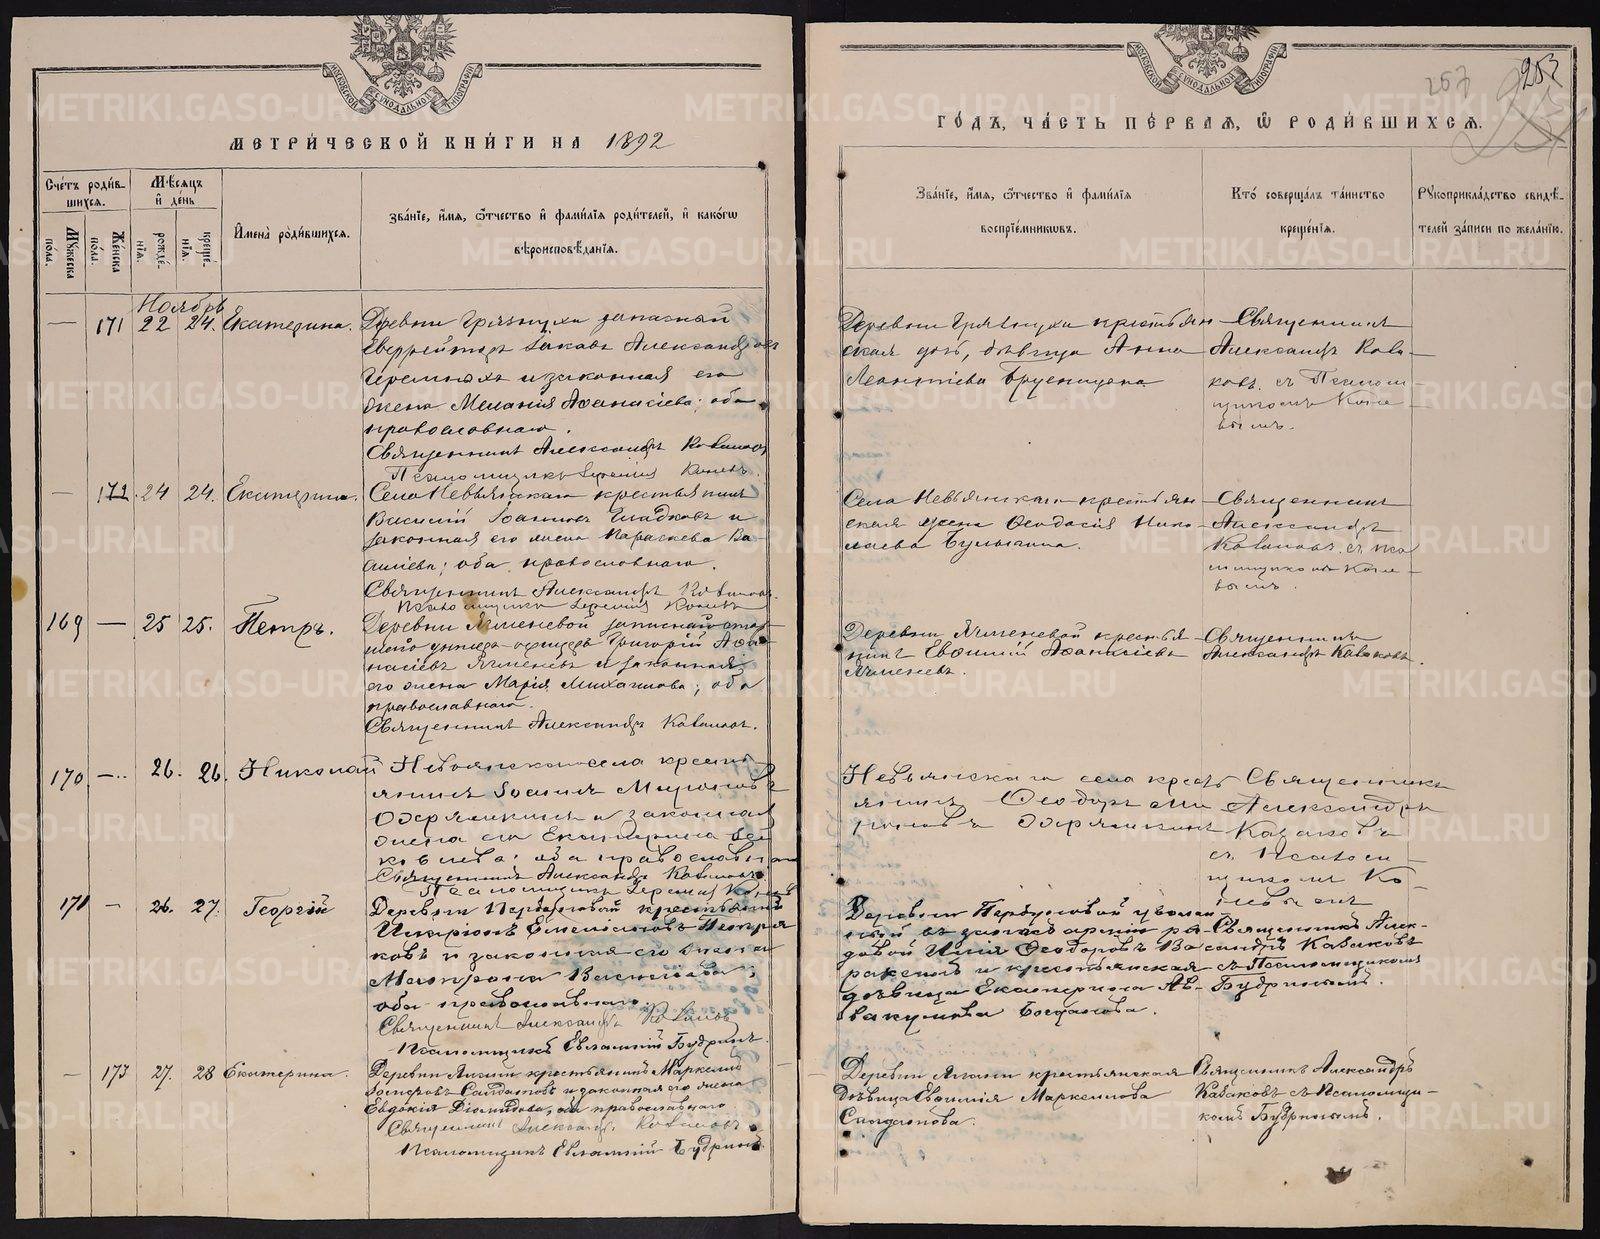 МОСКОВСКОЙ СѴНОДАЛЬНОЙ ТИПОГРАФІИ
МЕТРИ́ЧЕСКОЙ КНИ́ГИ НА 1892
Сче́тъ роди́в-
шихся.
Мѣ́сяцъ
и҆ де́нь
Мꙋ́жеска по́ла.
Же́нска по́ла.
рожде́нїѧ.
креще́нїѧ.
И҆мена̀ роди́вшихся.
Зва́нїе, и҆́мя, ѻ҆́тчество и҆ фами́лїя роди́телей, и҆ како́гѡ
вѣроисповѣ́данїя.
Ноябрь
— 171 22 24. Екатерина.
Деревни Грязнухи запасный
Ефрейторъ Іаковъ Александровъ
и законная его
жена Меланія Аѳанасіева; оба
православнаго.
Священникъ Александръ Коваковъ
Псаломщикъ Іеремія Коневъ.
— 172. 24 24. Екатерина.
Села Невьянскаго крестьянинъ
Василій Іоанновъ Гладковъ и
законная его жена Параскева Ва-
силіева; оба православнаго.
Священникъ Александръ Коваковъ.
Псаломщикъ Іеремія Коневъ
169 — 25 25. Петръ.
Деревни Ячменевой запаснаго стар-
шаго унтеръ-офицеръ Григорій Аѳа-
насіевъ Ячменевъ и законная
его жена Марія Михаилова; оба
православнаго.
Священникъ Александръ Коваковъ.
170 — 26. 26. Николай
Невьянскаго села кресть-
янинъ Іоаннъ Мироновъ
и законная
жена его Екатерина Іа-
ковлева; оба православнаго
Священникъ Александръ Коваковъ
Псаломщикъ Іеремія Коневъ
171 — 26. 27. Георгій
Деревни крестьянинъ
Иларіонъ Емельяновъ
и законная его жена
Матрона Васильева;
оба православнаго.
Священникъ Александръ Коваковъ
Псаломщикъ Евлампій Будринъ.
— 173 27. 28 Екатерина.
Деревни крестьянинъ Маркеллъ
и законная его жена
Евдокія Діомидова, оба православнаго
Священникъ Александръ Коваковъ.
Псаломщикъ Евлампій Будринъ.
257
253
МОСКОВСКОЙ СѴНОДАЛЬНОЙ ТИПОГРАФІИ
ГО́ДЪ, ЧА́СТЬ ПЕ́РВАЯ, Ѡ҆ РОДИ́ВШИХСЯ.
Зва́нїе, и҆́мя, ѻ҆́тчество и҆ фами́лїя
воспрїе́мникѡвъ.
Кто̀ соверша́лъ та́инство
креще́нїя.
Рꙋкоприкла́дство свидѣ́-
телей за́писи по жела́нїю.
Деревни Грязнухи крестьян-
ская дочь, дѣвица Анна
Леонтіева Брусницына
Священникъ
Александръ Кова-
ковъ съ Псалом-
щикомъ Коне-
вымъ.
Села Невьянскаго крестьян-
ская жена Ѳеодосія Нико-
лаева Булыгина.
Священникъ
Александръ
Коваковъ съ пса-
ломщикомъ Коне-
вымъ.
Деревни Ячменевой крестья-
нинъ Евѳимій Аѳанасіевъ
Ячменевъ.
Священникъ
Александръ Коваковъ.
Невьянскаго села кресть-
янинъ Ѳеодоръ
Священникъ
Александръ
Казаковъ
съ Псалом-
щикомъ Ко-
невымъ
Деревни уволен-
ный въ запасъ арміи ря-
довой Илія Ѳеодоровъ
и крестьянская
дѣвица Екатерина Ав-
вакумова Богданова.
Священникъ Алек-
сандръ Казаковъ
съ Псаломщикомъ
Будринымъ.
Деревни крестьянская
дѣвица Евѳимія Маркеллова
Священникъ Александръ
Казаковъ съ Псаломщи-
комъ Будринымъ.
METRIKI.GASO-URAL.RU